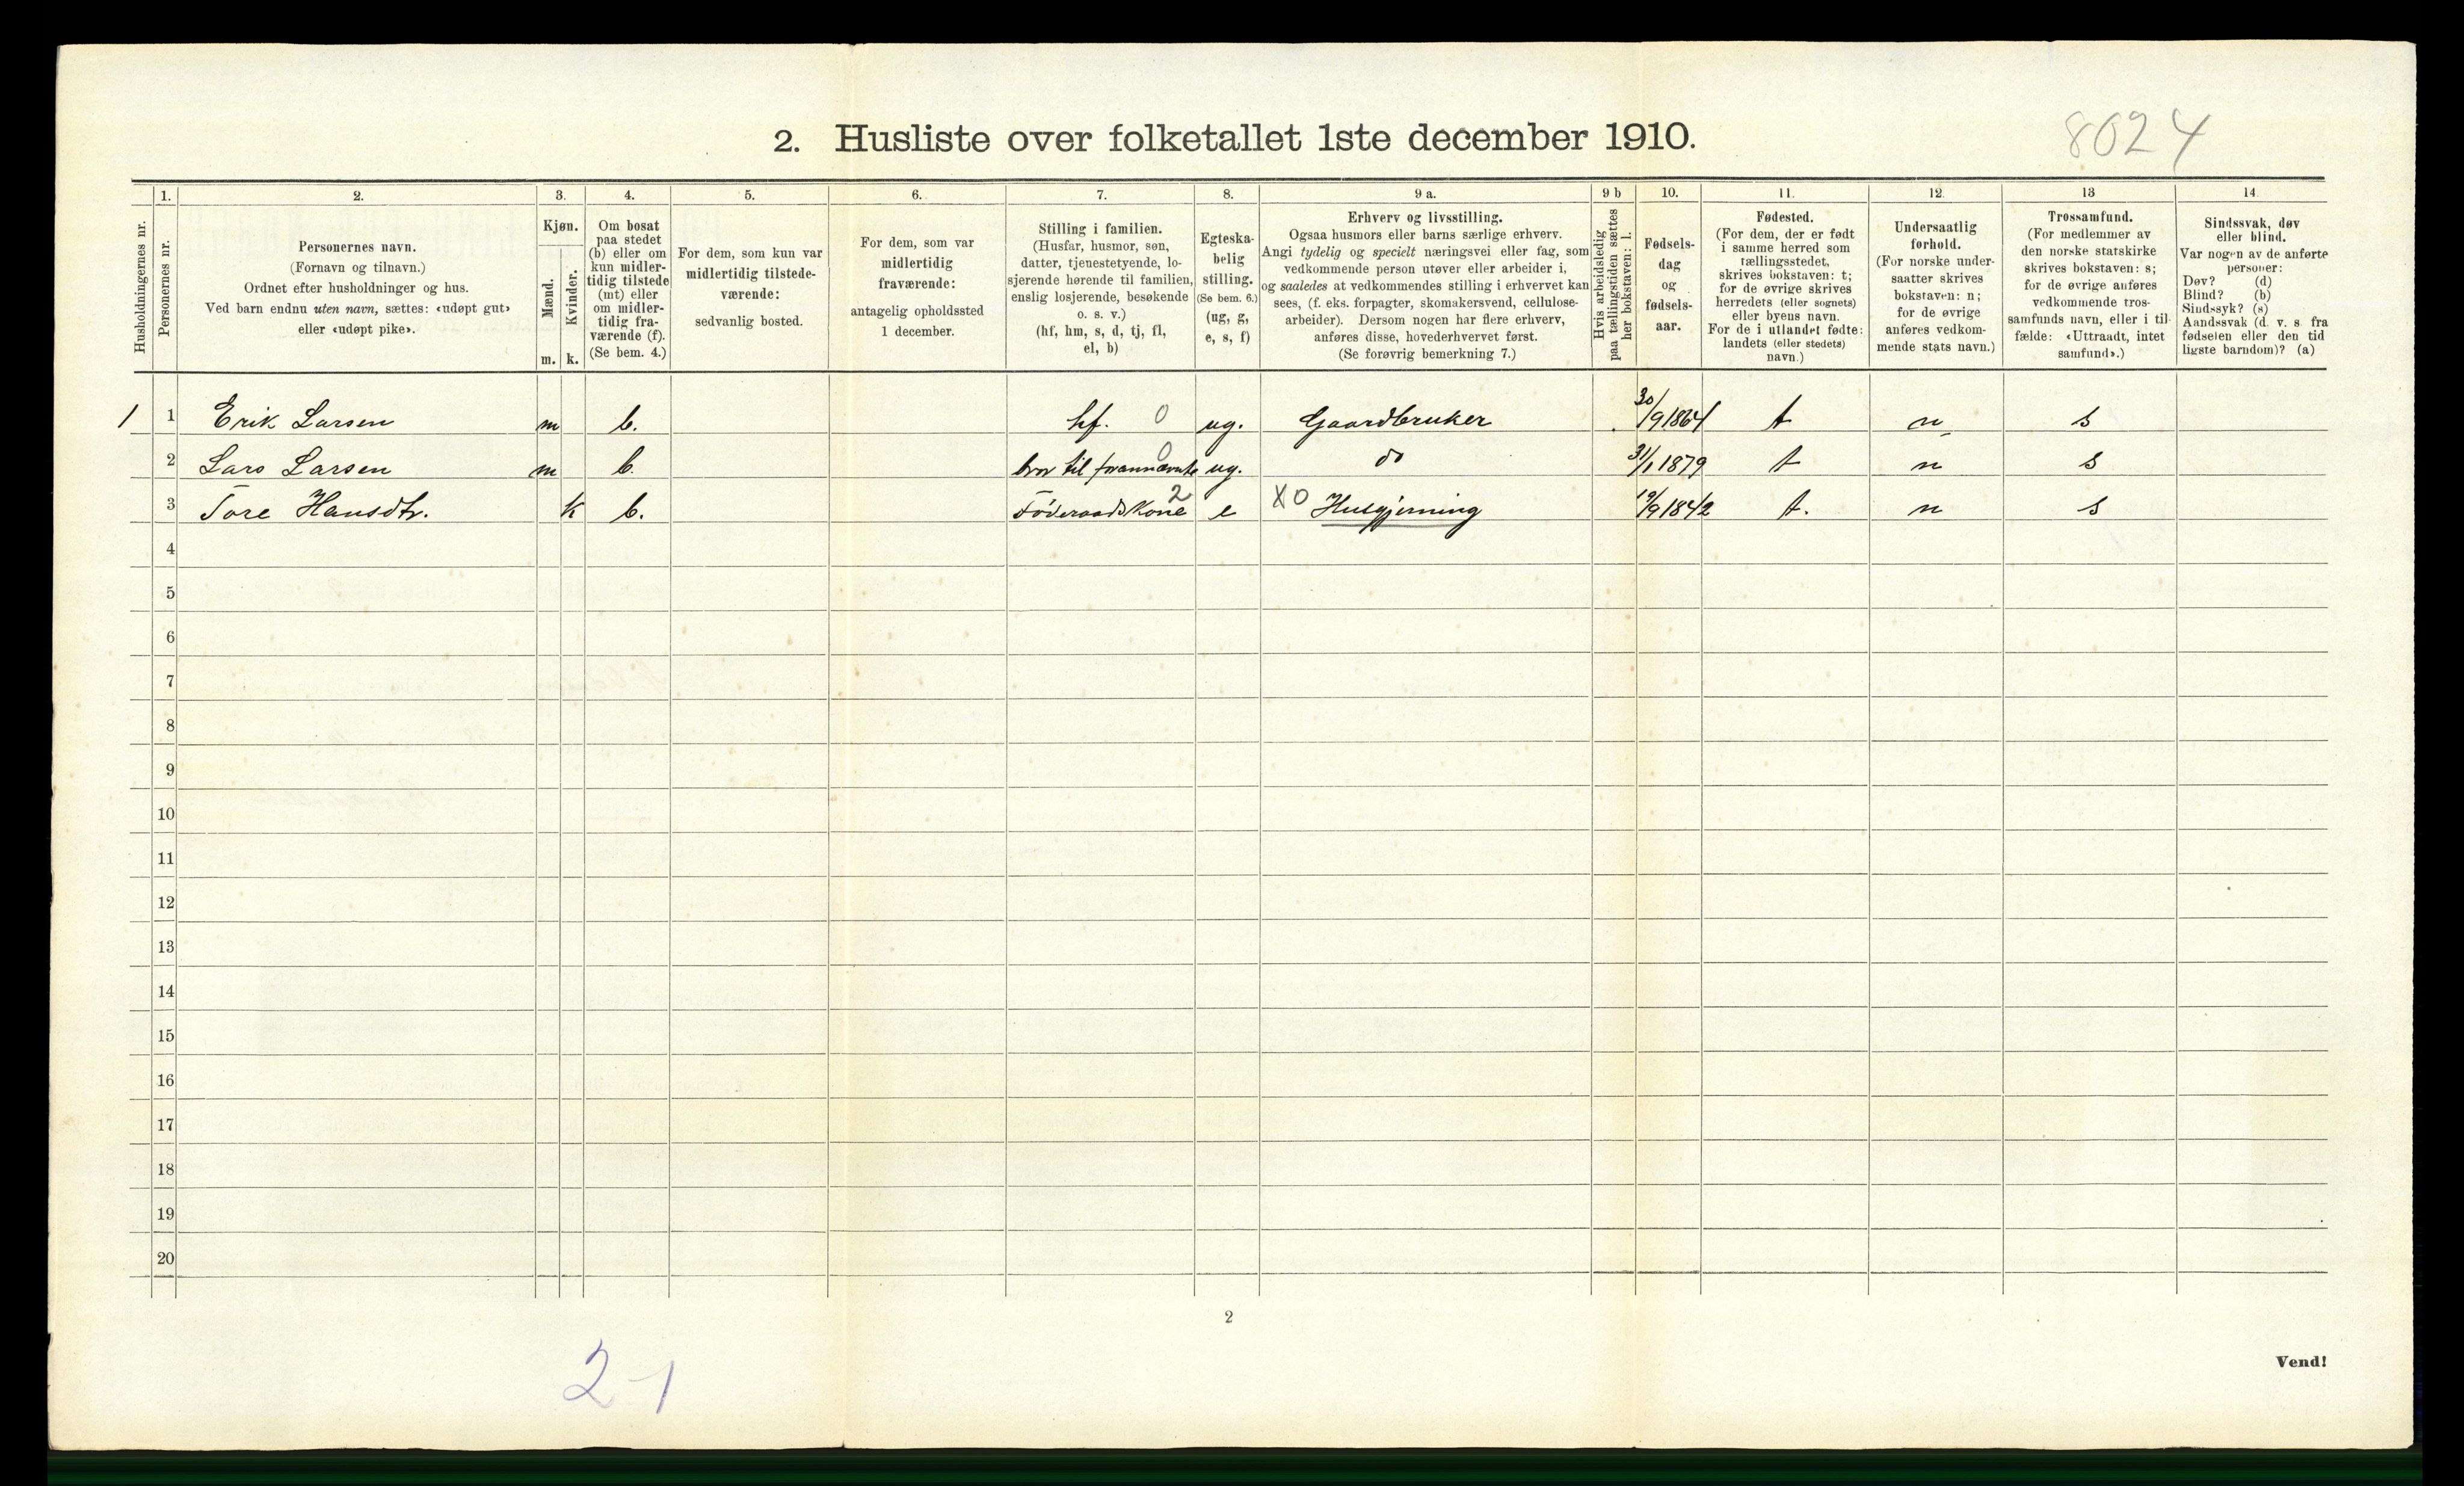 8024
2. Husliste over folketallet 1ste december 1910.
Husholdningernes nr.
1.
Personernes nr.
2.
Personernes navn.
(Fornavn og tilnavn.)
Ordnet efter husholdninger og hus.
Ved barn endnu uten navn, sættes: «udøpt gut»
eller «udøpt pike».
3.
Kjøn.
Mænd.
Kvinder.
m. k.
4.
Om bosat
paa stedet
(b) eller om
kun midler-
tidig tilstede
(mt) eller
om midler-
tidig fra-
værende (f).
(Se bem. 4.)
5.
For dem, som kun var
midlertidig tilstede-
værende:
sedvanlig bosted.
6.
For dem, som var
midlertidig
fraværende:
antagelig opholdssted
1 december.
7.
Stilling i familien.
(Husfar, husmor, søn,
datter, tjenestetyende, lo-
sjerende hørende til familien,
enslig losjerende, besøkende
o. s. v.)
(hf, hm, s, d, tj, fl,
el, b)
8.
Egteska-
belig
stilling.
(Se bem. 6.)
(ug, g,
e, s, f)
9 a.
Erhverv og livsstilling.
Ogsaa husmors eller barns særlige erhverv.
Angi tydelig og specielt næringsvei eller fag, som
vedkommende person utøver eller arbeider i,
og saaledes at vedkommendes stilling i erhvervet kan
sees, (f. eks. forpagter, skomakersvend, cellulose-
arbeider). Dersom nogen har flere erhverv,
anføres disse, hovederhvervet først.
(Se forøvrig bemerkning 7.)
9 b
Hvis arbeidsledig
paa tællingstiden sættes
her bokstaven: l.
10.
Fødsels-
dag
og
fødsels-
aar.
11.
Fødested.
(For dem, der er født
i samme herred som
tællingsstedet,
skrives bokstaven: t;
for de øvrige skrives
herredets (eller sognets)
eller byens navn.
For de i utlandet fødte:
landets (eller stedets)
navn.)
12.
Undersaatlig
forhold.
(For norske under-
saatter skrives
bokstaven: n;
for de øvrige
anføres vedkom-
mende stats navn.)
13
Trossamfund.
(For medlemmer av
den norske statskirke
skrives bokstaven: s;
for de øvrige anføres
vedkommende tros-
samfunds navn, eller i til-
fælde: «Uttraadt, intet
samfund».)
14.
Sindssvak, døv
eller blind.
Var nogen av de anførte
personer:
Døv? (d)
Blind? (b)
Sindssyk? (s)
Aandssvak (d. v. s. fra
fødselen eller den tid
ligste barndom)? (a)
1 1 Erik Larsen m b. hf. 0 ug. Gaardbruker 30/9 1864 t n s
2 Lars Larsen m b. bror til forannævnte 0 ug. do 31/1 1879 t n s
3 Tore Hansdtr. k b. Föderaadskone 2 e X0 Husgjerning 19/9 1842 t. n s
4
5
6
7
8
9
10
11
12
13
14
15
16
17
18
19
20
2
Vend!
2-1